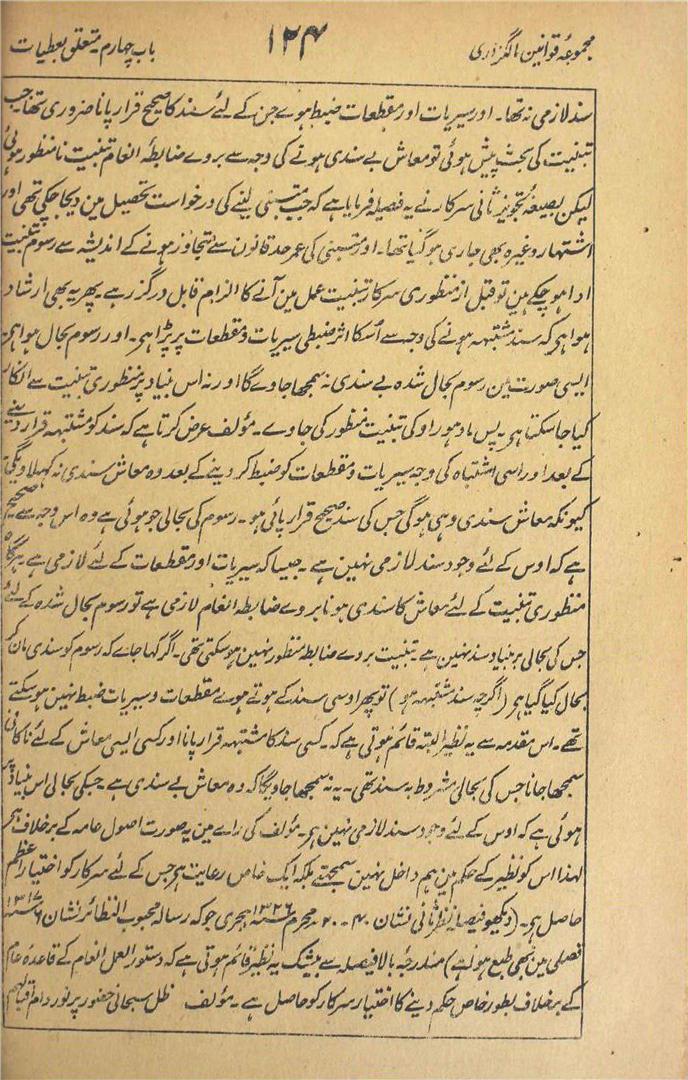 مجموعۂ قوانین مالگزاری
۱۲۴
باب چہارم ۔ متعلق بعطیات
سند لازمی نہ تھا ۔ اور سیریات اور مقطعات ضبط ہوے جن کے لئے سند کا صحیح قرار پانا ضروری تھا ۔ جب
تبنیت کی بحث پیش ہوئی تو معاش بے سندی ہونے کی وجہ سے بروے ضابطۂ انعام تبنیت نامنظور ہوئی
لیکن بصیغۂ تجویز ثانی سرکار نے یہ فیصلہ فرمایا ہے کہ جب متبنیٰ لینے کی درخواست تحصیل مین دیجا چکی تھی اور
اشتہار وغیرہ بھی جاری ہو گیا تھا ۔ اور متبنیٰ کی عمر حد قانون سے متجاوز ہونے کے اندیشہ سے رسوم تبنیت
ادا ہو چکے ہین تو قبل از منظوری سرکار تبنیت عمل مین آنے کا الزام قابل درگزر ہے ۔ پھر یہ بھی ارشاد
ہوا ہر کہ سند مشتبہہ ہونے کی وجہ سے اسکا اثر ضبطی سیریات و مقطعات پر پڑا ہر ۔ اور رسوم بحال ہوا ہر
ایسی صورت مین رسوم بحال شدہ بے سندی نہ سمجھا جاوے گا اور نہ اس بنیاد پر منظوری تبنیت سے انکار
کیا جا سکتا ہر ۔ پس مادہو راو کی تبنیت منظور کی جاوے ۔ مؤلف عرض کرتا ہے کہ سند کو مشتبہہ قرار دینے
کے بعد اور اسی اشتباہ کی وجہ سیریات و مقطعات کو ضبط کر دینے کے بعد وہ معاش سندی نہ کہلاویگی
کیونکہ معاش سندی وہی ہو گی جس کی سند صحیح قرار پائی ہو ۔ رسوم کی بحالی جو ہوئی ہے وہ اس وجہ سے صحیح
ہے کہ اوس کے لئے وجود سند لازمی نہین ہے ۔ جیسا کہ سیریات اور مقطعات کے لئے لازمی ہے ہرگاہ
منظوری تبنیت کے لئے معاش کا سندی ہونا بروے ضابطہ انعام لازمی ہے تو رسوم بحال شدہ کے لئے
جس کی بحالی بربنیاد سند نہین ہے ۔ تبنیت بروے ضابطہ منظور نہین ہو سکتی تھی ۔ اگر کہا جاے کہ رسوم کو سندی مان کر
بحال کیا گیا ہر (اگرچہ سند مشتبہہ ہو) تو پھر اوسی سند کے ہوتے ہوے مقطعات و سیریات ضبط نہین ہو سکتے
تھے ۔ اس مقدمہ سے یہ نظیر البتہ قائم ہوتی ہے کہ ۔ کسی سند کا مشتبہہ قرار پانا اور کسی ایسی معاش کے لئے ناکافی
سمجھا جانا جس کی بحالی مشروط بہ سند تھی ۔ یہ نہ سمجھا جاویگا کہ وہ معاش بے سندی ہے ۔ جبکی بحالی اس بنیاد پر
ہوئی ہے کہ اوس کے لئے وجود سند لازمی نہین ہر ۔ مؤلف کی راے مین یہ صورت اصول عامہ کے برخلاف ہر
لہذا اس کو نظیر کے حکم مین ہم داخل نہین سمجھتے بلکہ ایک خاص رعایت ہر جس کے لئے سرکار کو اختیار اعظم
حاصل ہر ۔ (دیکھو فیصلہ نظر ثانی نشان ۴۰ ۔ ۲۰ ۔ محرم ۱۳۲۶ ہجری جو کہ رسالہ محبوب النظائر نشان ۶ ۱۳۱۷
فصلی مین بھی طبع ہوا ہے) مندرجۂ بالا فیصلہ سے بیشک یہ نظیر قائم ہوتی ہے کہ دستور العمل انعام کے قاعدۂ عام
کے برخلاف بطور خاص حکم دینے کا اختیار سرکار کو حاصل ہے ۔ مؤلف ظل سبحانی حضور پر نور دام اقبالہم